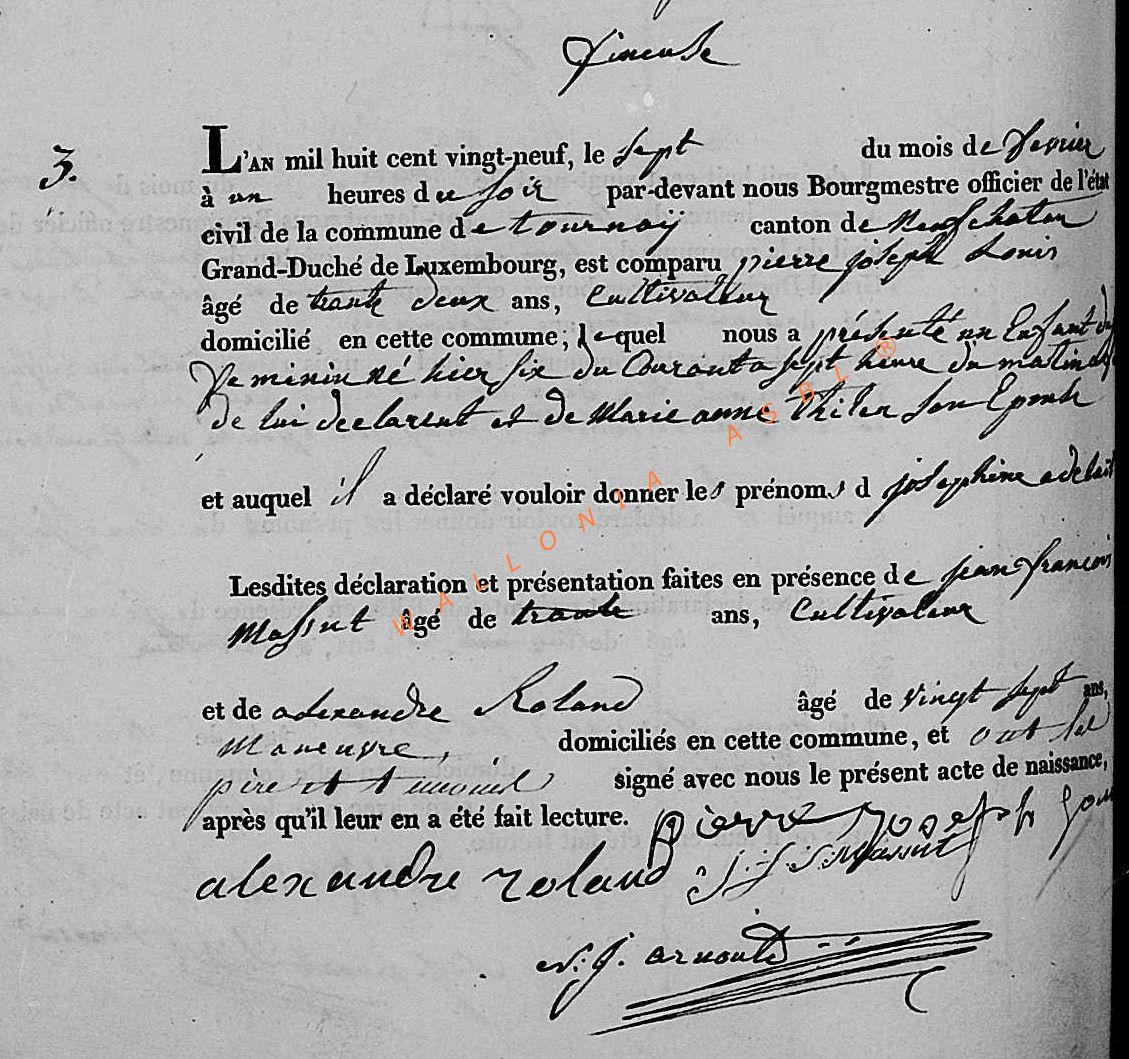 3.
L'AN mil huit cent vingt-neuf, le sept du mois de fevrier
à un heures du soir par-devant nous Bourgmestre officier de l'état
civil de la commune de tournay canton de Neufchateau
Grand-Duché de Luxembourg, est comparu pierre joseph Louis
âgé de trante deux ans, Cultivateur
domicilié en cette commune, lequel nous a présenté un Enfant du
feminin né hier six du Courant a sept heure du matin
de lui declarent et de Marie anne Thilen son Epouse
et auquel il a déclaré vouloir donner les prénoms d josephine adelaid
Lesdites déclaration et présentation faites en présence de jean francois
Massut âgé de trante ans, Cultivateur
et de alexandre Roland âgé de vingt sept ans,
Maneuvre, domiciliés en cette commune, et ont les
pere et temoins signé avec nous le présent acte de naissance,
après qu'il leur en a été fait lecture.
pierre Joseph Loui
alexandre roland J. f. Massut
N. J. arnould
WALLONIA ASBL ®